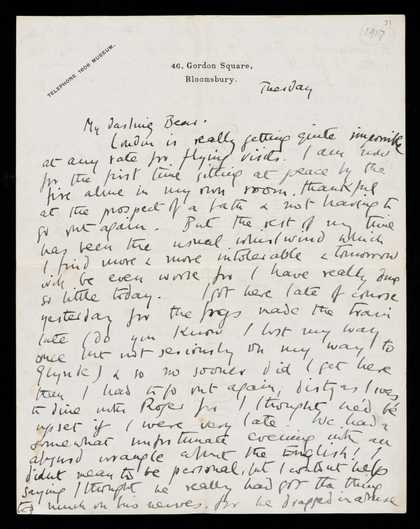 31
1917
TELEPHONE 1608 MUSEUM.
46, Gordon Square,
Bloomsbury.
Tuesday
My darling Bear.
London is really getting quite impossible
at any rate for flying visits. I am now
for the first time sitting at peace by the
fire alone in my own room, thankful
at the prospect of a bath & not having to
go out again. But the rest of my time
has been the usual whirlwind which
I find more & more intolerable & tomorrow
will be even worse for I have really done
so little today. I got here late of course
yesterday for the frogs made the train
late (do you know I lost my way
once but not seriously on my way to
Glynde) & so no sooner did I get here
than I had to go out again, dirty as I was
to dine with Roger for I thought he'd be
upset if I were very late. We had a
somewhat unfortunate evening with an
absurd wrangle about the English! I
didn't mean to be personal, but I couldn't help
saying I thought he really had got the thing
too much on his nerves, for he dragged in abuse